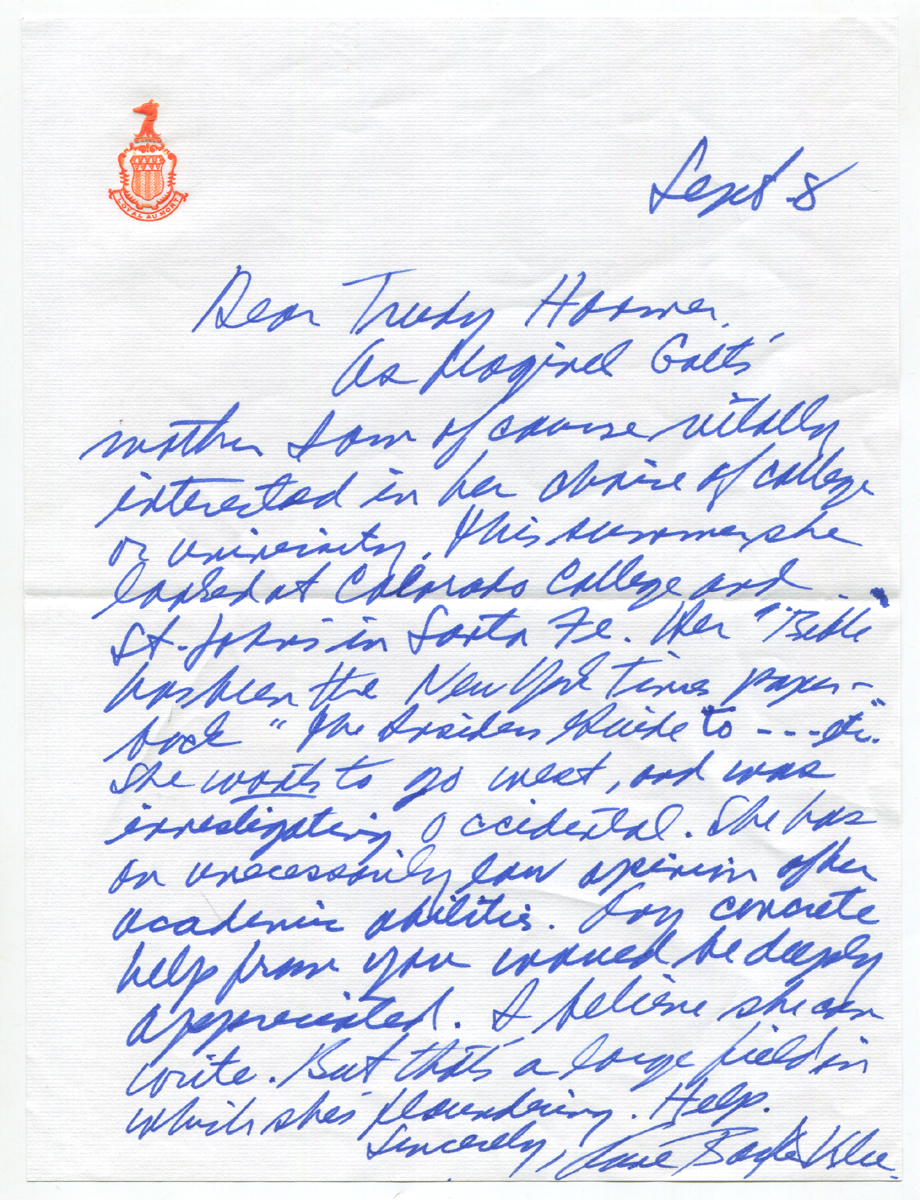 LOYAL AU MORT
Sept 8
Dear Trudy Hanmer,
As Maginel Galt's
mother I am of course vitally
interested in her choice of college
or university. This summer she
looked at Colorado College and
St. Johns in Santa Fe. Her "Bible"
has been the New York Times paper-
back "The Insiders Guide to --- etc."
She wants to go west, and was
investigating Occidental. She has
an unecessarily low opinion of her
academic abilities. Any concrete
help from you would be deeply
appreciated. I believe she can
write. But that's a large field in
which she's floundering. Help.
Sincerely, Anne